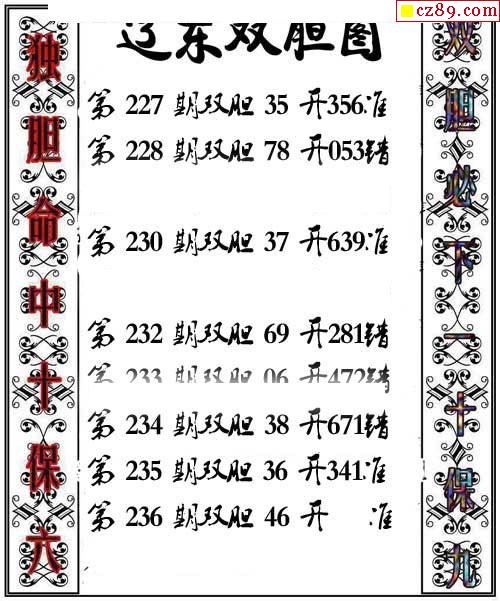 cz89.com
辽东双胆图
独胆命中十保六
第 227 期双胆 35 开356准
第 228 期双胆 78 开053错
第 230 期双胆 37 开639准
第 232 期双胆 69 开281错
第 233 期双胆 06 开472错
第 234 期双胆 38 开671错
第 235 期双胆 36 开341准
第 236 期双胆 46 开 准
双胆必下一十保九